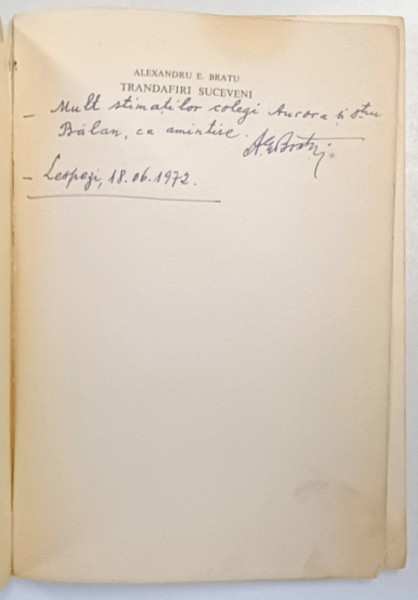 ALEXANDRU E. BRATU
TRANDAFIRI SUCEVENI
– Mult stimaților colegi Aurora și
Bălan, ca amintire. A.E. Bratu
– Lespezi, 18.06.1972.